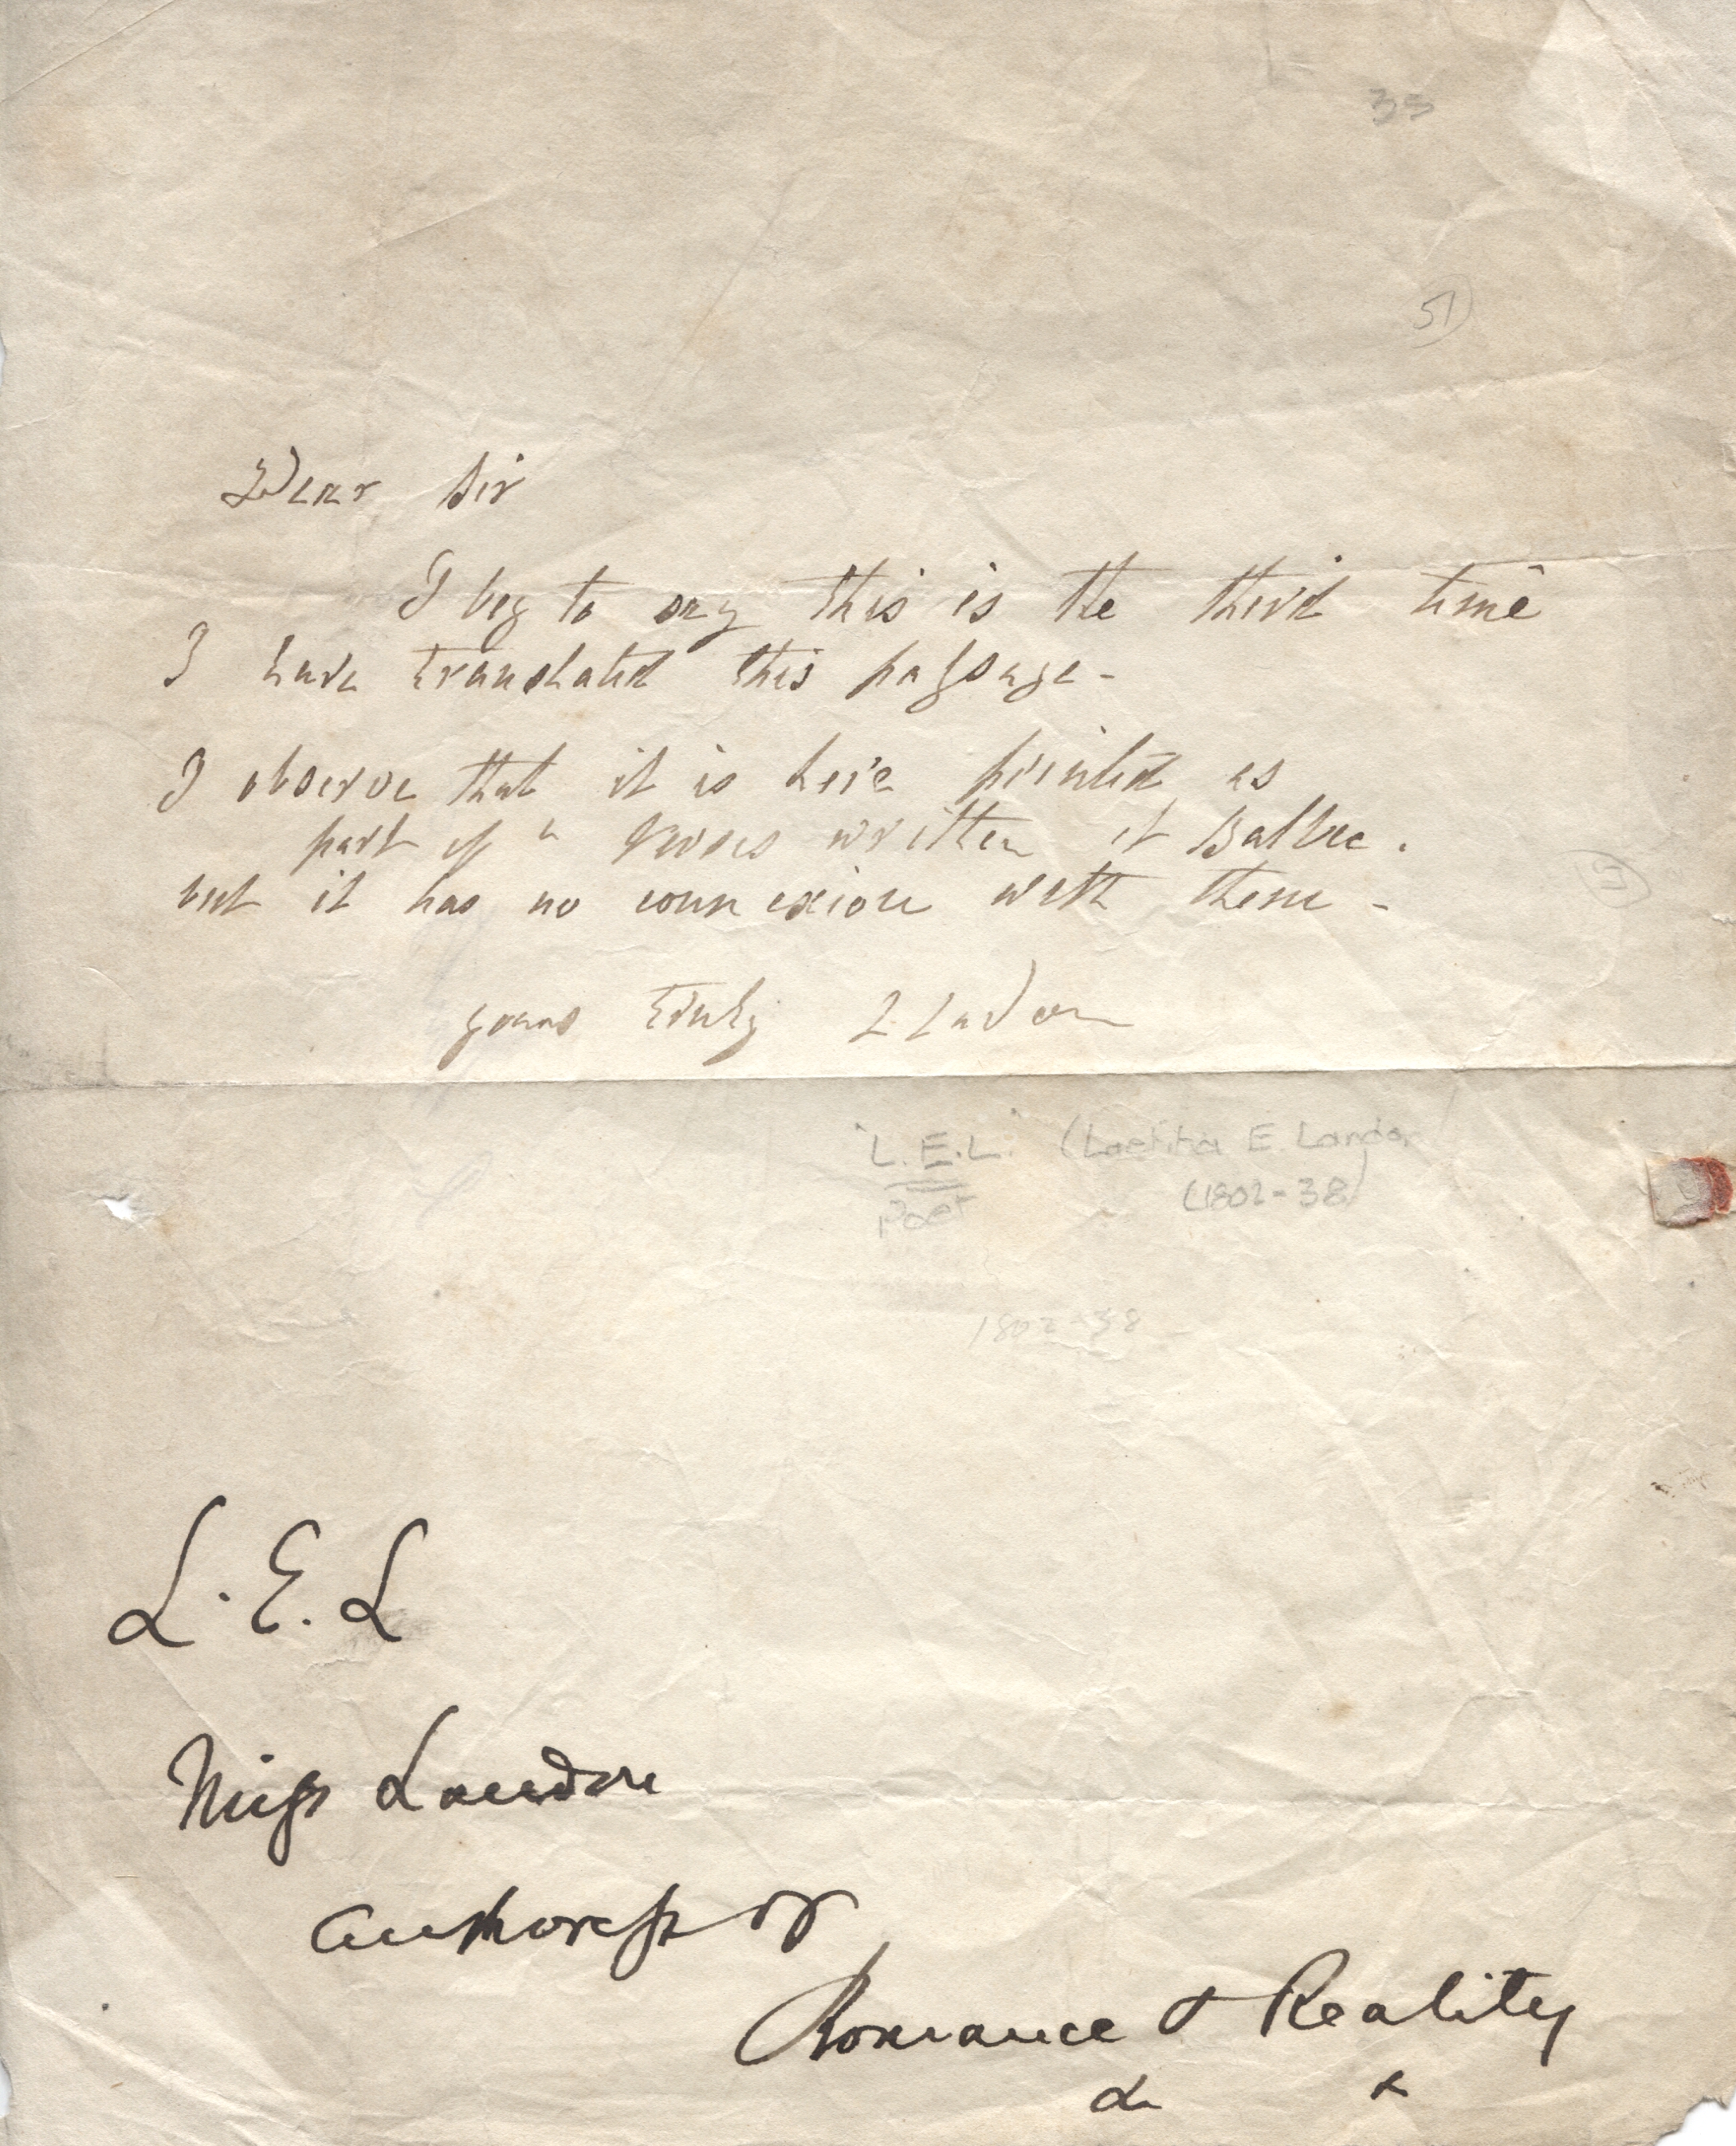 35
51
Dear Sir
I beg to say this is the third time
I have translated this passage -
I observe that it is here printed as
part of a verses written at Balbec.
but it has no connexion with them -
yours truly L Landon
"L.E.L." (Laetitia E. Landon
Poet (1802-38)
1802-38
L.E.L
Miss Landon
Authoress of
Romance & Reality
&c &